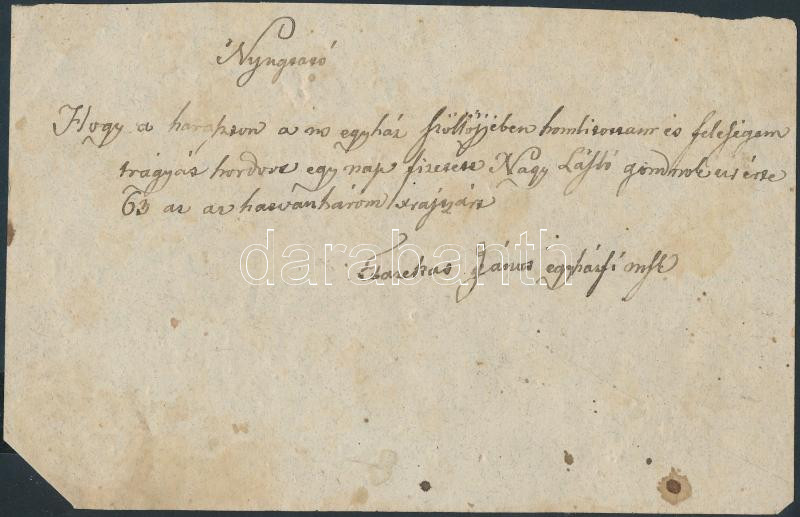 Nyugtató
Hogy a harapson a ns egyház szöllőjjében homlitottam és feleségem
trágyát hordott egy nap fizetett Nagy László gondnok ur érte
63 az az hatvanhárom xrajtzárt
Farkas János egyházfi mk
darabanth